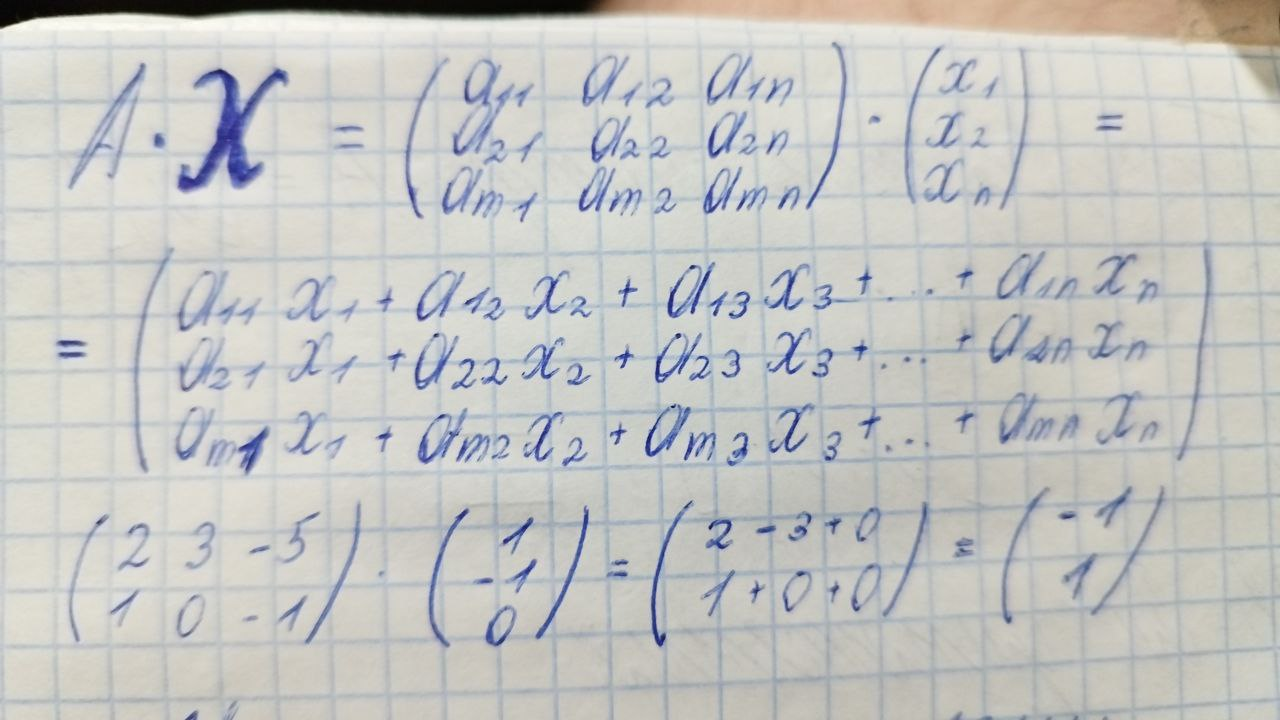 A · X = ( a₁₁ a₁₂ a₁ₙ ) · ( x₁ ) =
( a₂₁ a₂₂ a₂ₙ ) ( x₂ )
( aₘ₁ aₘ₂ aₘₙ ) ( xₙ )
= ( a₁₁ x₁ + a₁₂ x₂ + a₁₃ x₃ + ... + a₁ₙ xₙ )
( a₂₁ x₁ + a₂₂ x₂ + a₂₃ x₃ + ... + a₂ₙ xₙ )
( aₘ₁ x₁ + aₘ₂ x₂ + aₘ₃ x₃ + ... + aₘₙ xₙ )
( 2 3 -5 ) · ( 1 ) = ( 2 - 3 + 0 ) = ( -1 )
( 1 0 -1 ) ( -1 ) ( 1 + 0 + 0 ) ( 1 )
( 0 )